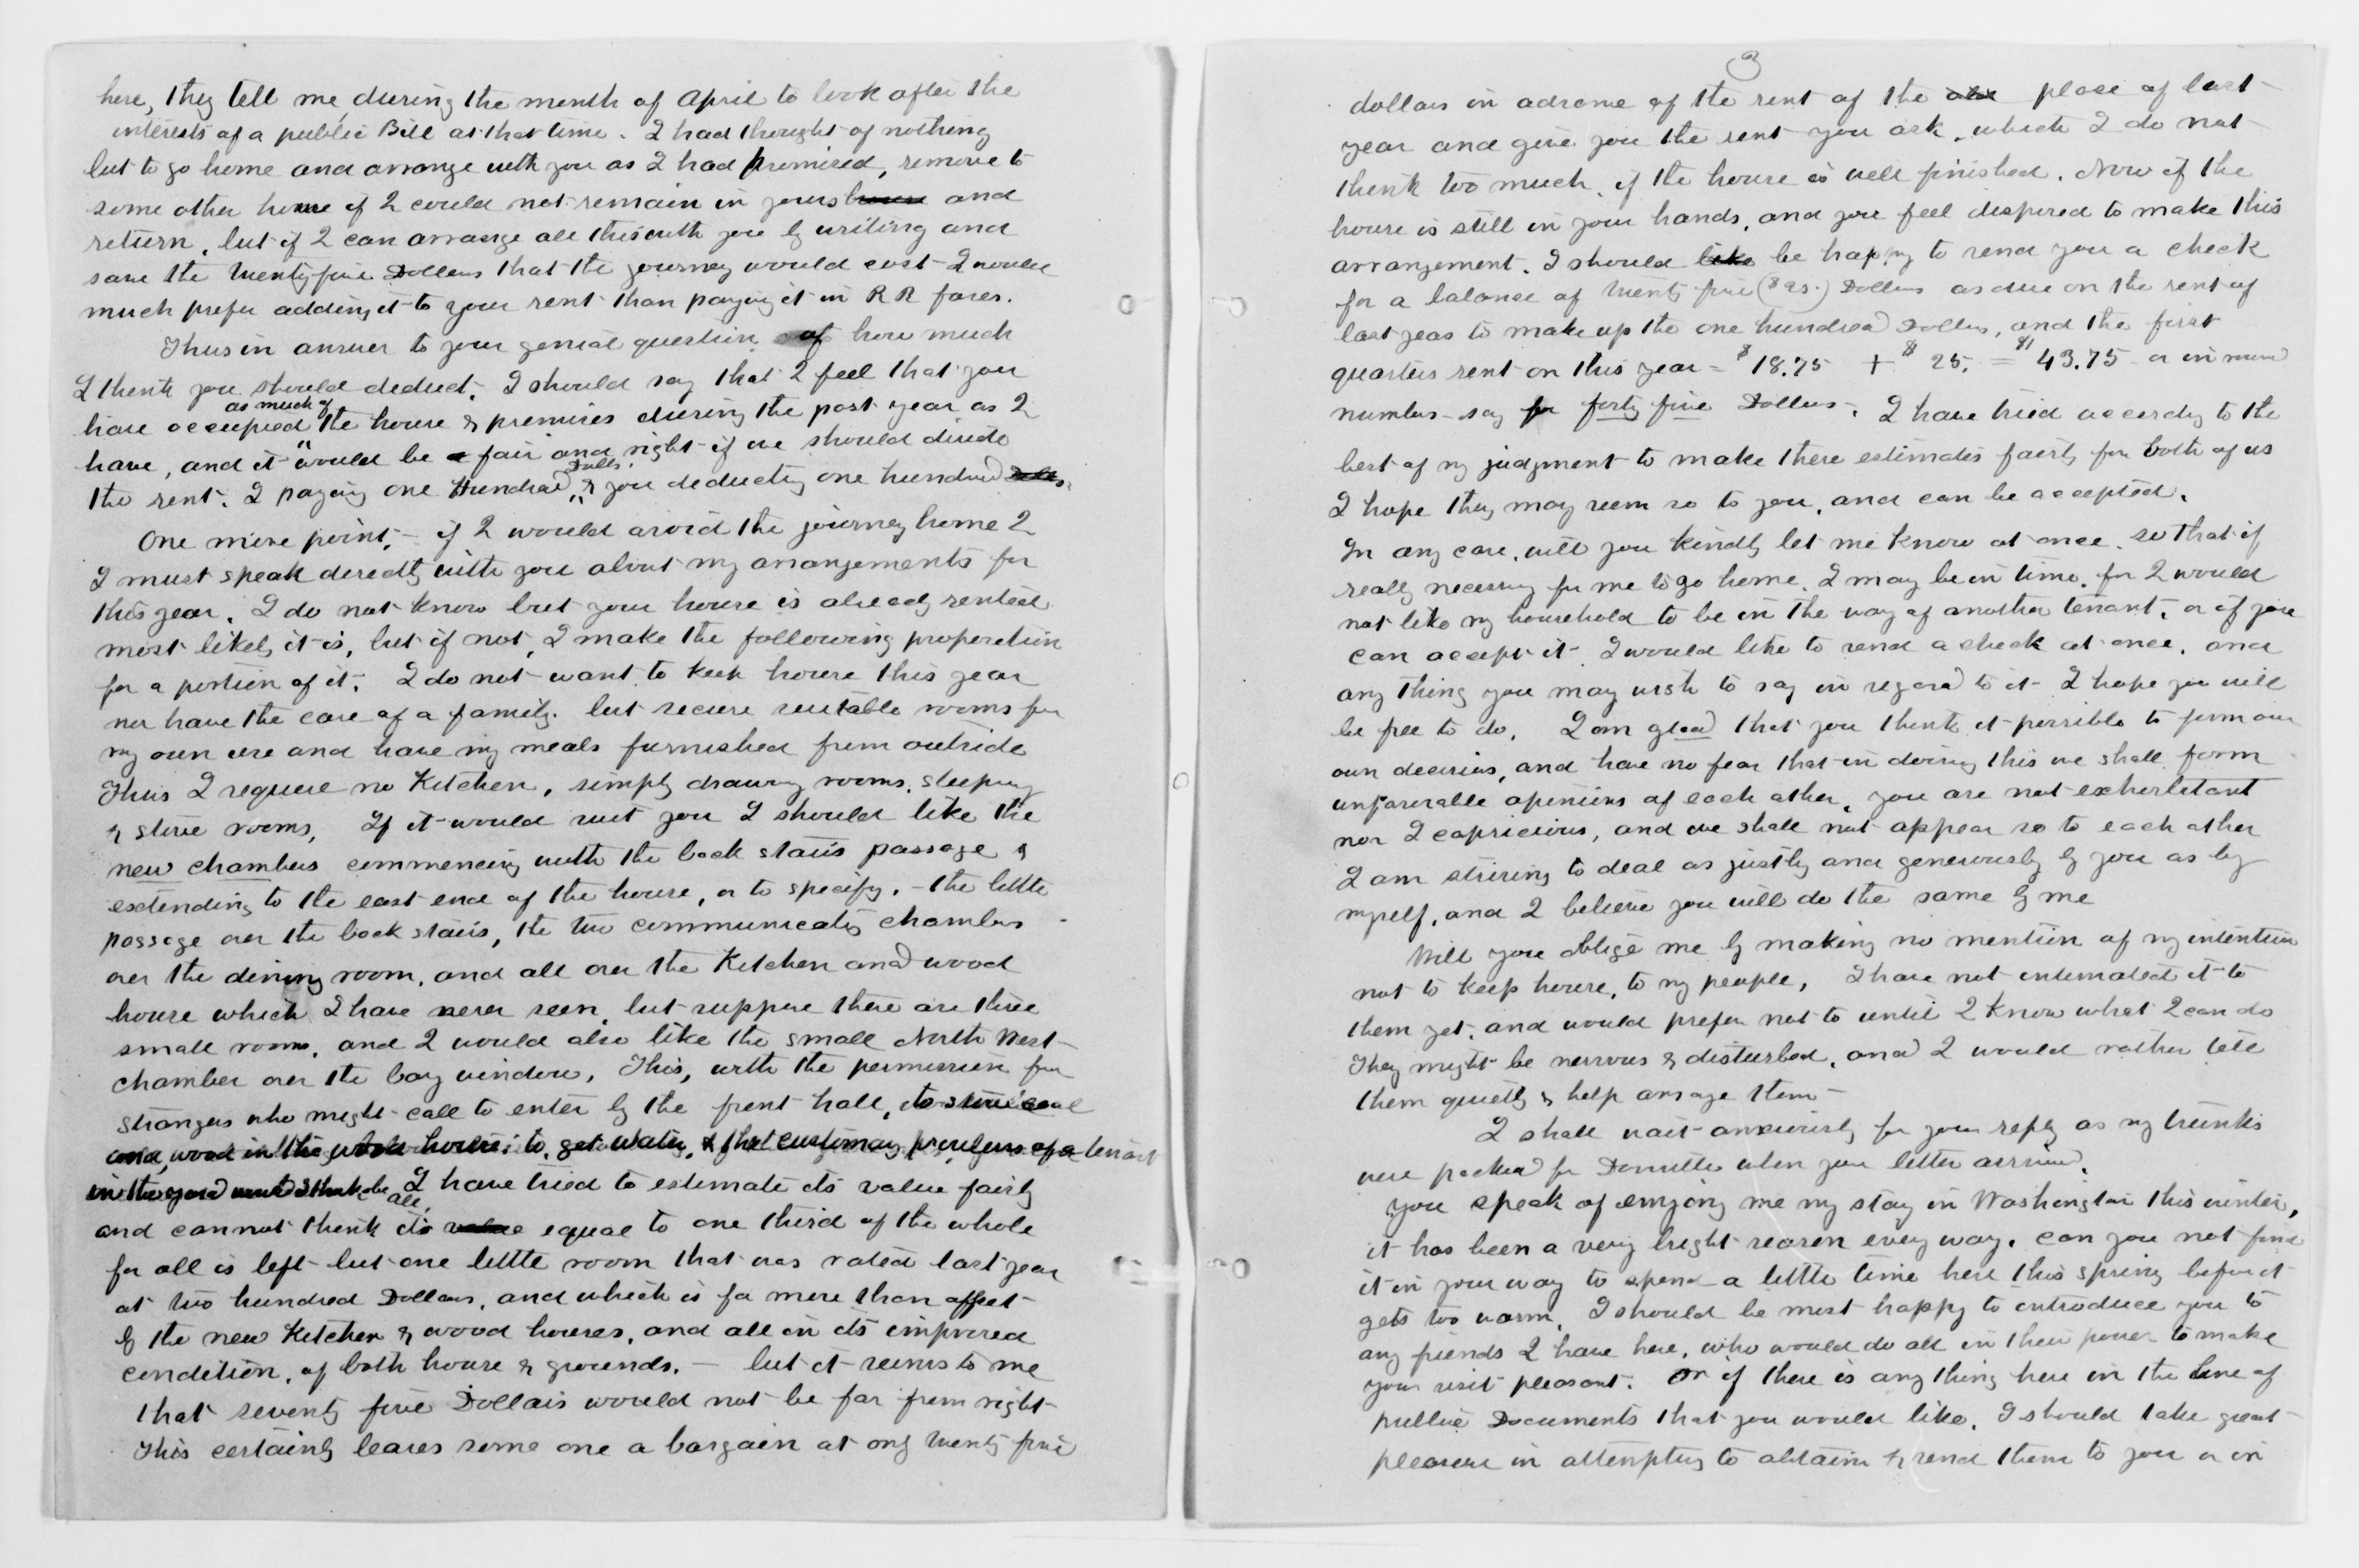 here, they tell me, during the month of April to look after the
interests of a public Bill at that time. I had thought of nothing
but to go home and arrange with you as I had promised, remove to
some other house if I could not remain in yours house and
return, but if I can arrange all this with you by writing and
save the twenty five Dollars that the journey would cost I would
much prefer adding it to your rent than paying it in RR fares.
Thus in answer to your genial question of how much
I think you should deduct. I should say that I feel that you
have occupied as much of the house & premises during the past year as I
have, and it would be a fair and right if we should divide
the rent. I paying one Hundred Dolls. & you deducting one hundred Dolls.
One more point, – if I would avoid the journey home I
I must speak directly with you about my arrangements for
this year. I do not know but your house is already rented
most likely it is, but if not, I make the following proposition
for a portion of it. I do not want to keep house this year
nor have the care of a family. but secure suitable rooms for
my own use and have my meals furnished from outside
Thus I require no Kitchen, simply drawing rooms, sleeping
& store rooms. If it would suit you I should like the
new chambers commencing with the back stairs passage &
extending to the east end of the house, or to specify. – the little
passage over the back stairs, the two communicating chambers
over the dining room, and all over the Kitchen and wood
house which I have never seen, but suppose there are three
small rooms, and I would also like the small North West
chamber over the bay window. This, with the permission for
strangers who might call to enter by the front hall, to store coal
and wood in the wood house; to get water, & the customary privileges of a tenant
in the yard would I think be all, I have tried to estimate its value fairly
and cannot think its value equal to one third of the whole
for all is left but one little room that was rated last year
at two hundred Dollars, and which is far more than offset
by the new Kitchen & wood houses, and all in its improved
condition, of both house & grounds. – but it seems to me
that seventy five Dollars would not be far from right
This certainly leaves some one a bargain at only twenty five
3
dollars in advance of the rent of the old place of last
year and give you the rent you ask, which I do not
think too much, if the house is well finished. Now if the
house is still in your hands, and you feel disposed to make this
arrangement. I should like be happy to send you a check
for a balance of twenty five ($25.) Dollars as due on the rent of
last year to make up the one hundred Dollars, and the first
quarters rent on this year = $18.75 + $25. = $43.75 or in round
numbers – say for forty five Dollars. I have tried according to the
best of my judgment to make these estimates fairly for both of us
I hope they may seem so to you, and can be accepted.
In any case, will you kindly let me know at once, so that if
really necessary for me to go home, I may be in time, for I would
not like my household to be in the way of another tenant. or if you
can accept it I would like to send a check at once, and
any thing you may wish to say in regard to it I hope you will
be free to do. I am glad that you think it possible to form our
own decisions, and have no fear that in doing this we shall form
unfavorable opinions of each other, you are not exherbitant
nor I capricious, and we shall not appear so to each other
I am striving to deal as justly and generously by you as by
myself, and I believe you will do the same by me
Will you oblige me by making no mention of my intention
not to keep house, to my people, I have not intimated it to
them yet. and would prefer not to until I know what I can do
They might be nervous & disturbed, and I would rather tell
them quietly & help arrange them –
I shall wait anxiously for your reply as my trunks
were packed for Dansville when your letter arrived.
You speak of envying me my stay in Washington this winter,
it has been a very bright season every way. can you not find
it in your way to spend a little time here this spring before it
gets too warm. I should be most happy to introduce you to
any friends I have here, who would do all in their power to make
your visit pleasant. Or if there is any thing here in the line of
public Documents that you would like. I should take great
pleasure in attempting to obtain & send them to you or in